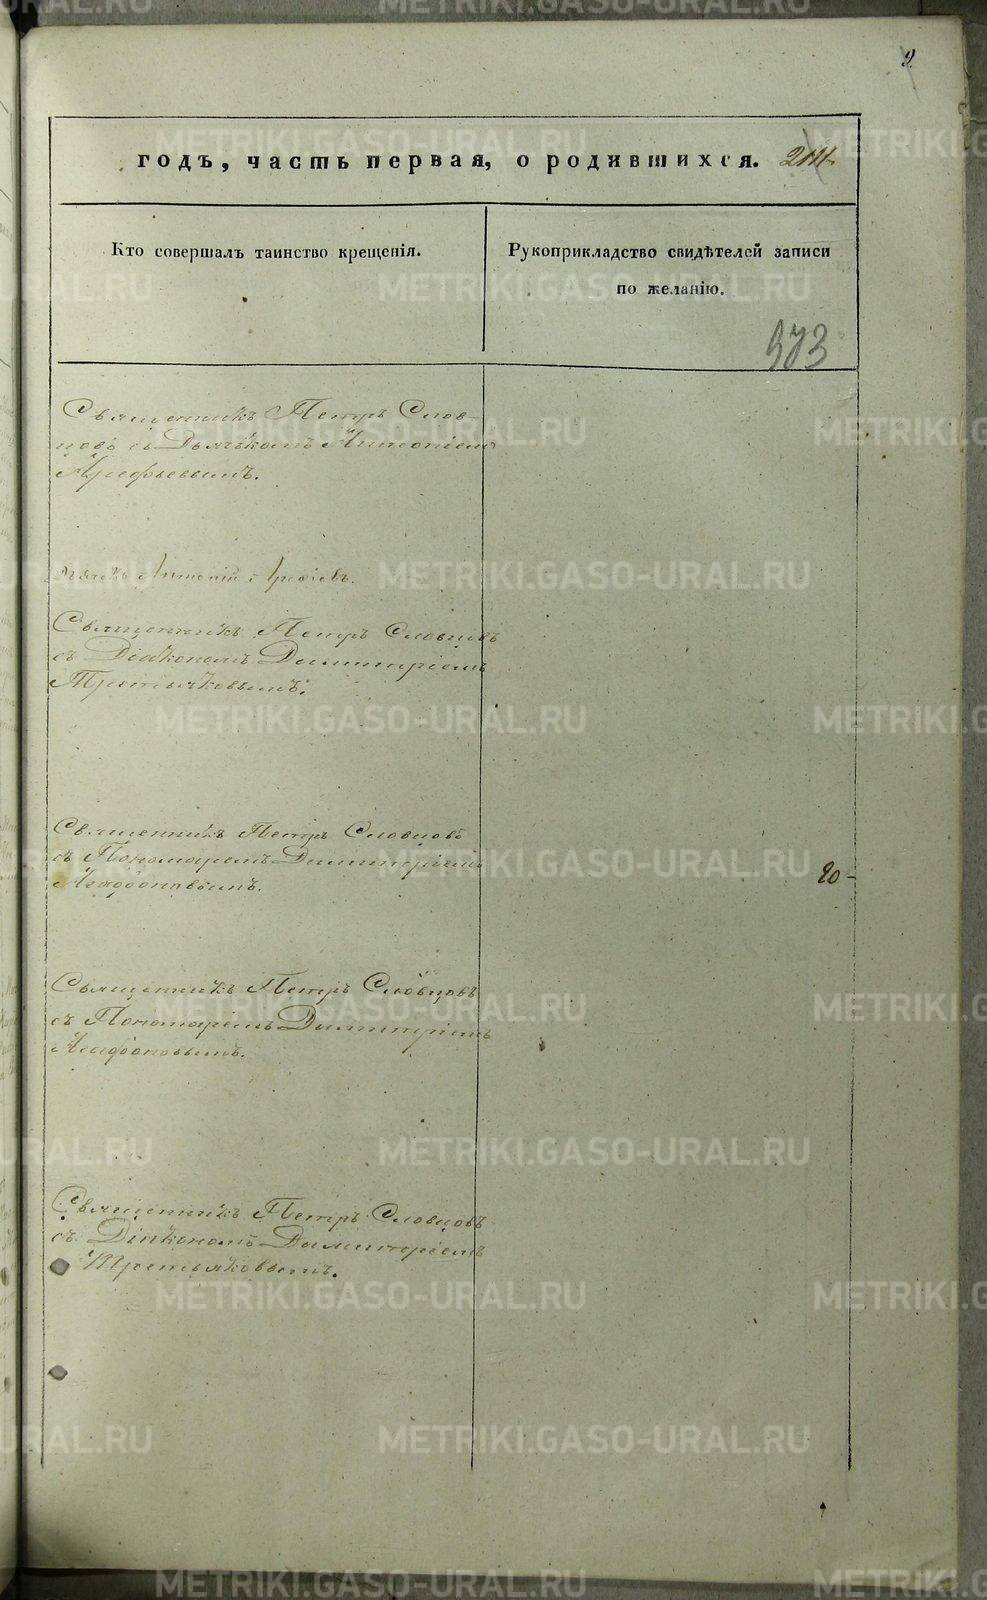 9
годъ, часть первая, о родившихся.
Кто совершалъ таинство крещенія.
Рукоприкладство свидѣтелей записи
по желанію.
373
Священникъ Петръ Слов-
цовъ съ Дьячкомъ Антоніемъ
Арефьевымъ.
Дьячекъ Антоній
Священникъ Петръ Словцовъ
съ Діакономъ Димитріемъ
Третьяковымъ.
Священникъ Петръ Словцовъ
съ Пономаремъ Димитріемъ
Агафоновымъ.
20 -
Священникъ Петръ Словцовъ
съ Пономаремъ Димитріемъ
Агафоновымъ.
Священникъ Петръ Словцовъ
съ Діакономъ Димитріемъ
Третьяковымъ.
METRIKI.GASO-URAL.RU